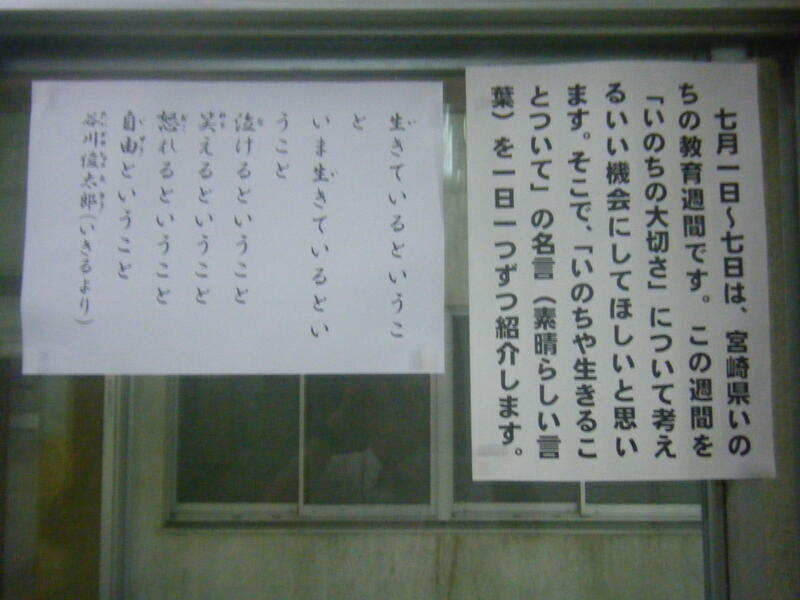 七月一日～七日は、宮崎県いの
ちの教育週間です。この週間を
「いのちの大切さ」について考え
るいい機会にしてほしいと思い
ます。そこで、「いのちや生きるこ
とついて」の名言（素晴らしい言
葉）を一日一つずつ紹介します。
生きているというこ
と
いま生きているとい
うこと
泣けるということ
笑えるということ
怒れるということ
自由ということ
谷川俊太郎（いきるより）